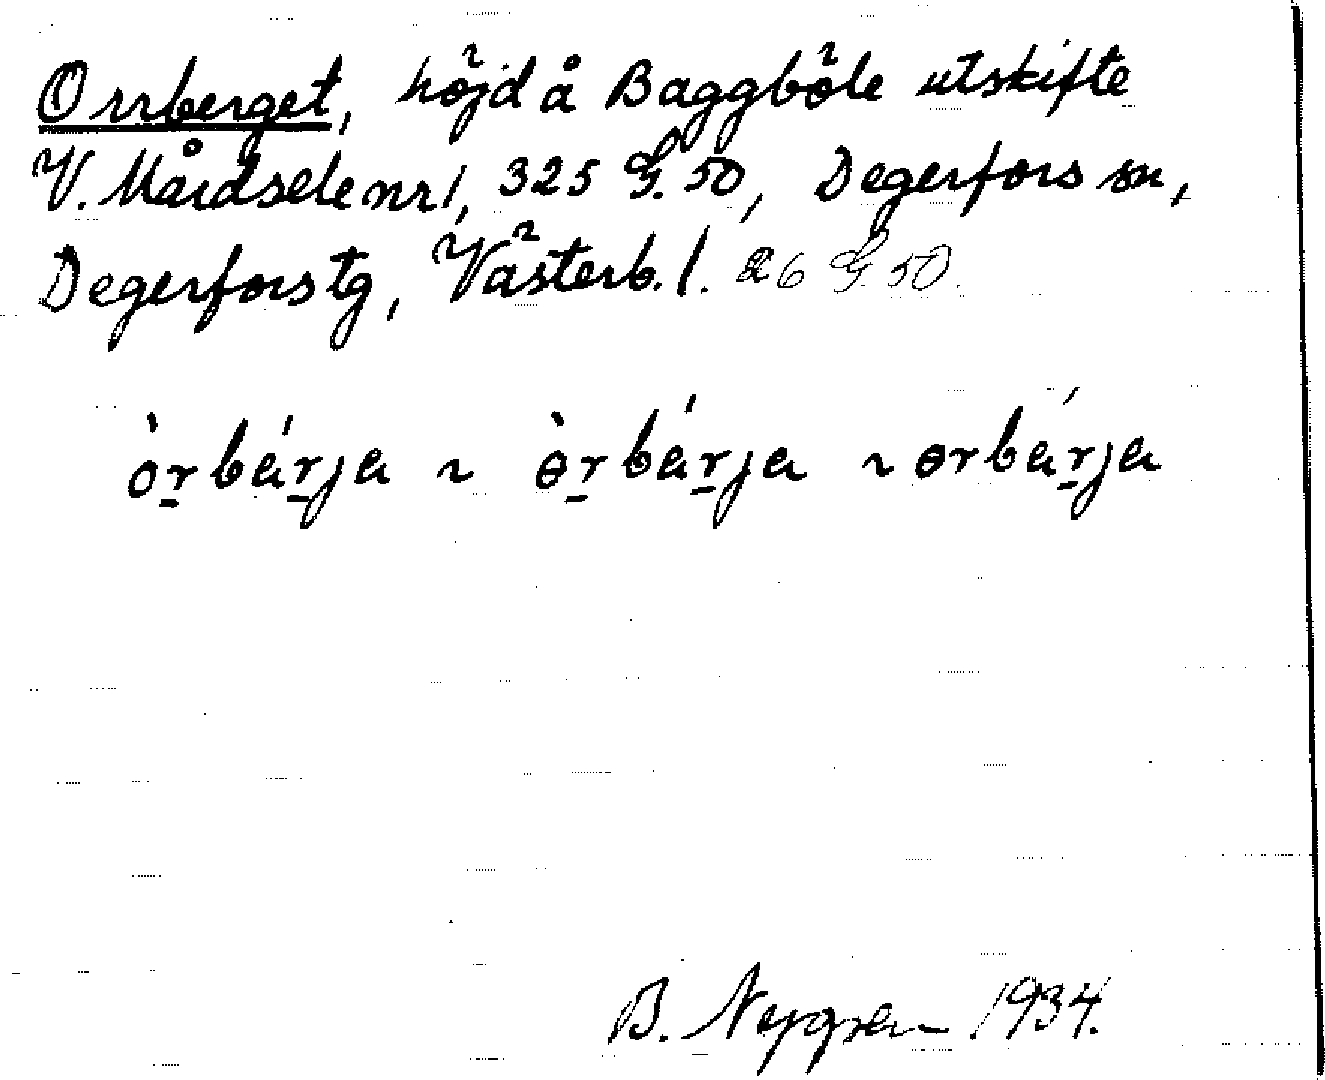 Orrberget, höjd å Baggböle utskifte
V. Mårdsele nr 1, 325 G. 50, Degerfors sn,
Degerfors tg, Västerb. l. 26 G 50.
òr̲bár̲ja ~ ɵ̀r̲bár̲ja ~ ɵrbár̲ja
B. 1934.